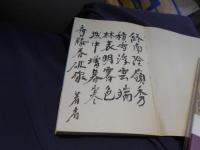 終南陰嶺秀
積雪浮雲端
林表明霽色
城中增暮寒
著者